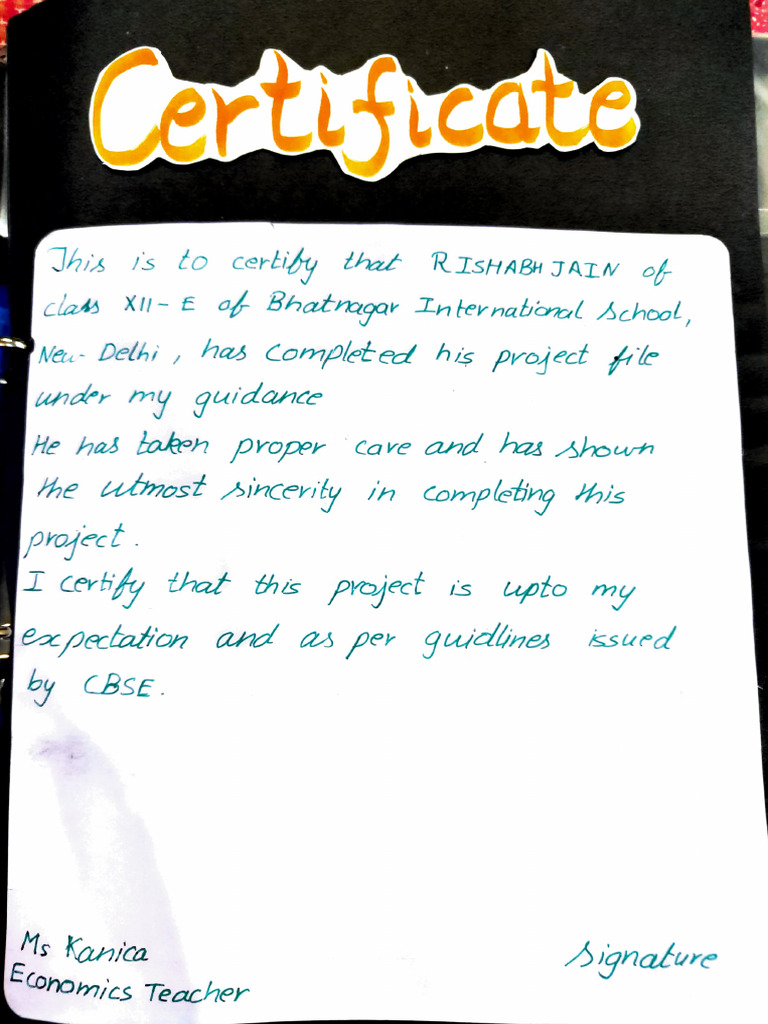 Certificate
This is to certify that RISHABH JAIN of
class XII-E of Bhatnagar International School,
New-Delhi, has completed his project file
under my guidance
He has taken proper care and has shown
the utmost sincerity in completing this
project.
I certify that this project is upto my
expectation and as per guidlines issued
by CBSE.
Ms Kanica
Economics Teacher
Signature